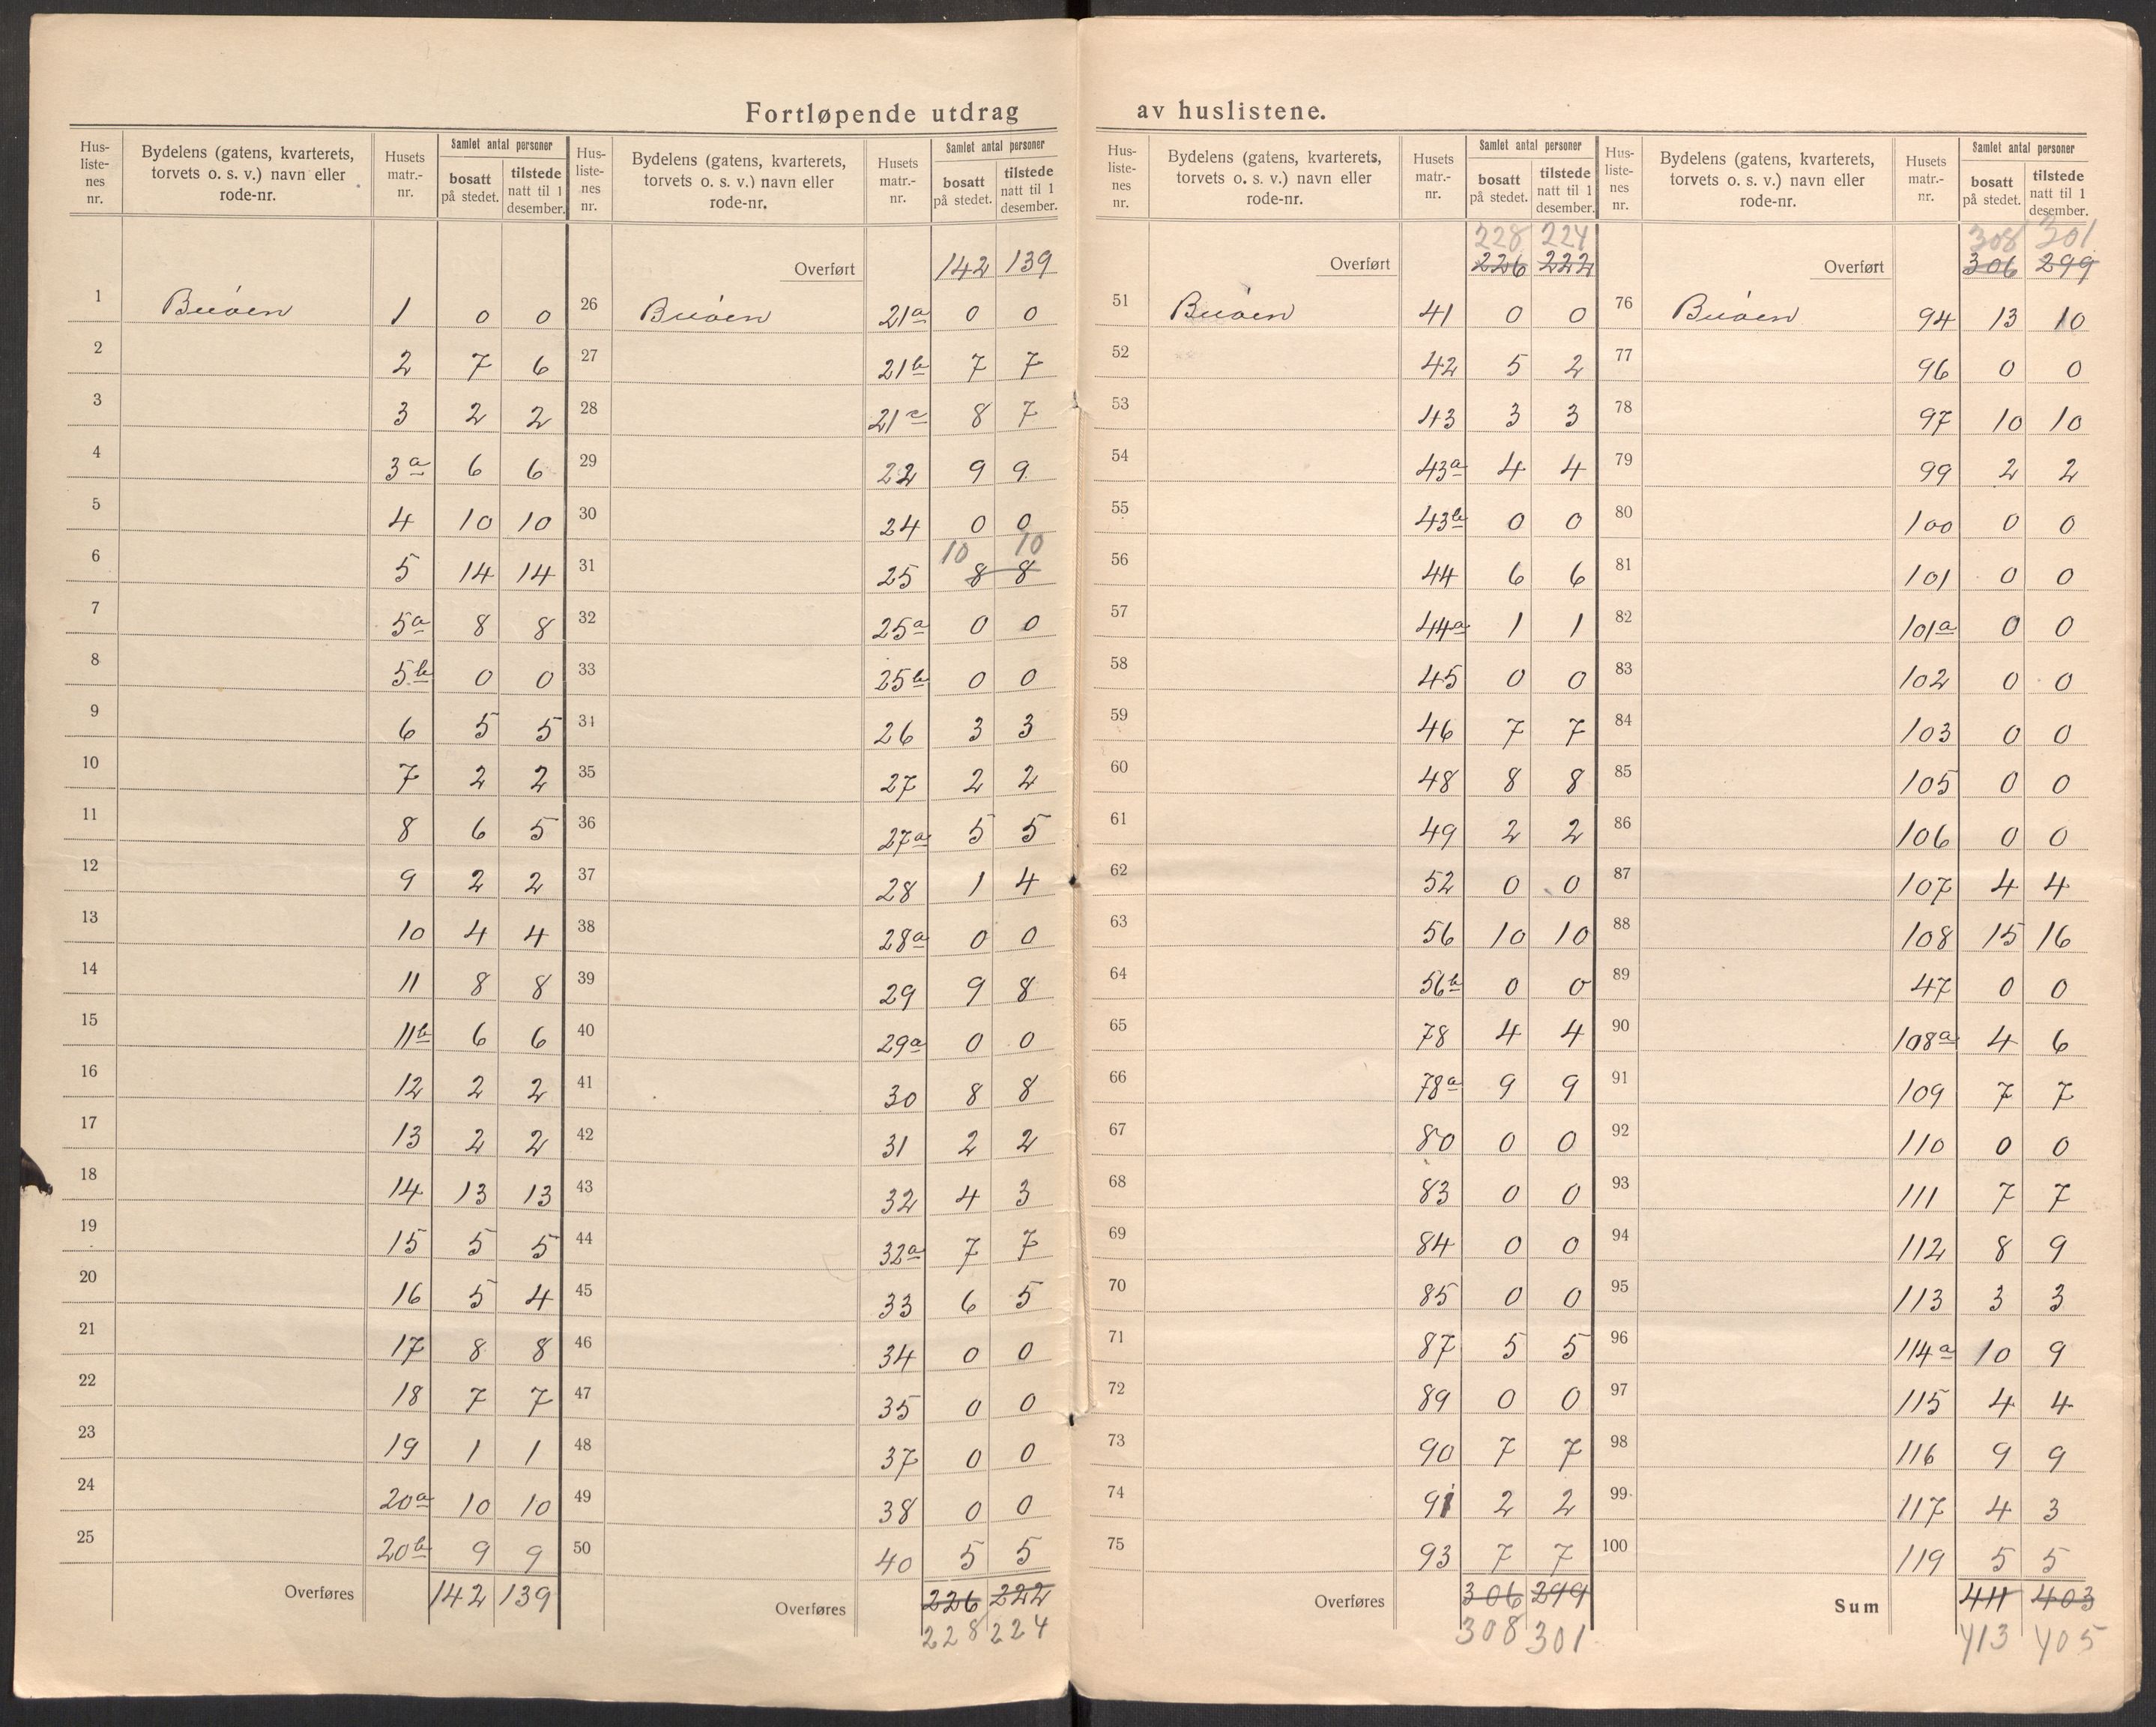 Fortløpende utdrag av huslistene.
Hus-listenes nr. | Bydelens (gatens, kvarterets, torvets o. s. v.) navn eller rode-nr. | Husets matr.-nr. | Samlet antal personer bosatt på stedet. | tilstede natt til 1 desember.
1 Buøen 1 0 0
2 2 7 6
3 3 2 2
4 3a 6 6
5 4 10 10
6 5 14 14
7 5a 8 8
8 5b 0 0
9 6 5 5
10 7 2 2
11 8 6 5
12 9 2 2
13 10 4 4
14 11 8 8
15 11b 6 6
16 12 2 2
17 13 2 2
18 14 13 13
19 15 5 5
20 16 5 4
21 17 8 8
22 18 7 7
23 19 1 1
24 20a 10 10
25 20b 9 9
Overføres 142 139
Hus-listenes nr. | Bydelens (gatens, kvarterets, torvets o. s. v.) navn eller rode-nr. | Husets matr.-nr. | Samlet antal personer bosatt på stedet. | tilstede natt til 1 desember.
Overført 142 139
26 Buøen 21a 0 0
27 21b 7 7
28 21c 8 7
29 22 9 9
30 24 0 0
10 10
31 25 8 8
32 25a 0 0
33 25b 0 0
34 26 3 3
35 27 2 2
36 27a 5 5
37 28 1 4
38 28a 0 0
39 29 9 8
40 29a 0 0
41 30 8 8
42 31 2 2
43 32 4 3
44 32a 7 7
45 33 6 5
46 34 0 0
47 35 0 0
48 37 0 0
49 38 0 0
50 40 5 5
Overføres 226 222
228 224
Hus-listenes nr. | Bydelens (gatens, kvarterets, torvets o. s. v.) navn eller rode-nr. | Husets matr.-nr. | Samlet antal personer bosatt på stedet. | tilstede natt til 1 desember.
228 224
Overført 226 222
51 Buøen 41 0 0
52 42 5 2
53 43 3 3
54 43a 4 4
55 43b 0 0
56 44 6 6
57 44a 1 1
58 45 0 0
59 46 7 7
60 48 8 8
61 49 2 2
62 52 0 0
63 56 10 10
64 56b 0 0
65 78 4 4
66 78a 9 9
67 80 0 0
68 83 0 0
69 84 0 0
70 85 0 0
71 87 5 5
72 89 0 0
73 90 7 7
74 91 2 2
75 93 7 7
Overføres 306 299
308 301
Hus-listenes nr. | Bydelens (gatens, kvarterets, torvets o. s. v.) navn eller rode-nr. | Husets matr.-nr. | Samlet antal personer bosatt på stedet. | tilstede natt til 1 desember.
308 301
Overført 306 299
76 Buøen 94 13 10
77 96 0 0
78 97 10 10
79 99 2 2
80 100 0 0
81 101 0 0
82 101a 0 0
83 102 0 0
84 103 0 0
85 105 0 0
86 106 0 0
87 107 4 4
88 108 15 16
89 47 0 0
90 108a 4 6
91 109 7 7
92 110 0 0
93 111 7 7
94 112 8 9
95 113 3 3
96 114a 10 9
97 115 4 4
98 116 9 9
99 117 4 3
100 119 5 5
Sum 411 403
413 405